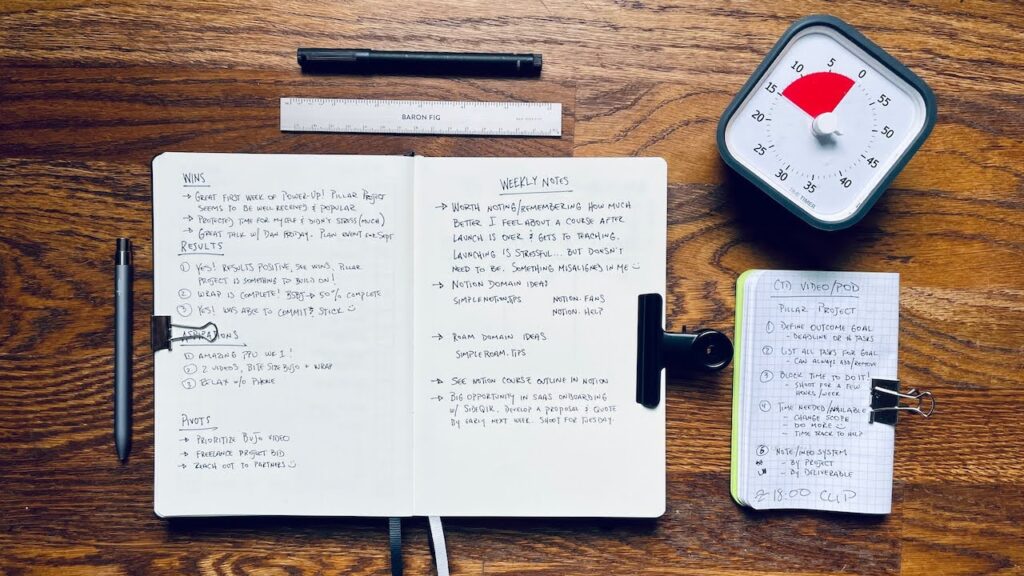 BARON FIG
WINS
→ GREAT FIRST WEEK OF POWER-UP! PILLAR PROJECT
SEEMS TO BE WELL RECEIVED & POPULAR
→ PROTECTED TIME FOR MYSELF & DIDN'T STRESS (MUCH)
→ GREAT TALK W/ DAN . PLAN EVENT FOR SEPT
RESULTS
① YES! RESULTS POSITIVE, WINS, PILLAR
PROJECT IS SOMETHING TO BUILD ON!
② WRAP IS COMPLETE! BSBJ → 50% COMPLETE
③ YES! WAS ABLE TO COMMIT & STICK ☺
ASPIRATIONS
① AMAZING PPU WK 1!
② 2 VIDEOS, BITE SIZE BUJO + WRAP
③ RELAX W/O PHONE
PIVOTS
→ PRIORITIZE BUJO VIDEO
→ FREELANCE PROJECT BID
→ REACH OUT TO PARTNERS ☺
WEEKLY NOTES
→ WORTH NOTING/REMEMBERING HOW MUCH
BETTER I FEEL ABOUT A COURSE AFTER
LAUNCH IS OVER & GETS TO TEACHING.
LAUNCHING IS STRESSFUL... BUT DOESN'T
NEED TO BE. SOMETHING MISALIGNED IN ME ☺
→ NOTION DOMAIN IDEAS
SIMPLENOTION.TIPS NOTION.FANS
NOTION.HELP
→ ROAM DOMAIN IDEAS
SIMPLEROAM.TIPS
→ SEE NOTION COURSE OUTLINE IN NOTION
→ BIG OPPORTUNITY IN SAAS ONBOARDING
W/ . DEVELOP A PROPOSAL & QUOTE
BY EARLY NEXT WEEK. SHOOT FOR TUESDAY.
0
5
10
15
20
25
30
35
40
45
50
55
TIME TIMER
VIDEO/POD
PILLAR PROJECT
① DEFINE OUTCOME GOAL
- DEADLINE OR # TASKS
② LIST ALL TASKS FOR GOAL
- CAN ALWAYS ADD/REMOVE
③ BLOCK TIME TO DO IT!
- SHOOT FOR A FEW
HOURS/WEEK
④ TIME NEEDED/AVAILABLE
- CHANGE SCOPE
- DO MORE
- TIME TRACK TO HELP
⑤ NOTE/INFO SYSTEM
- BY PROJECT
- BY DELIVERABLE
18:00 CLIP